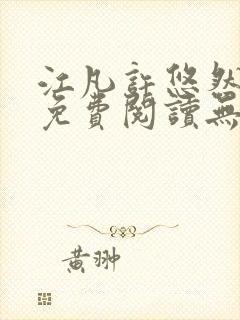 江凡許悠然
免費閱讀無
黃翀